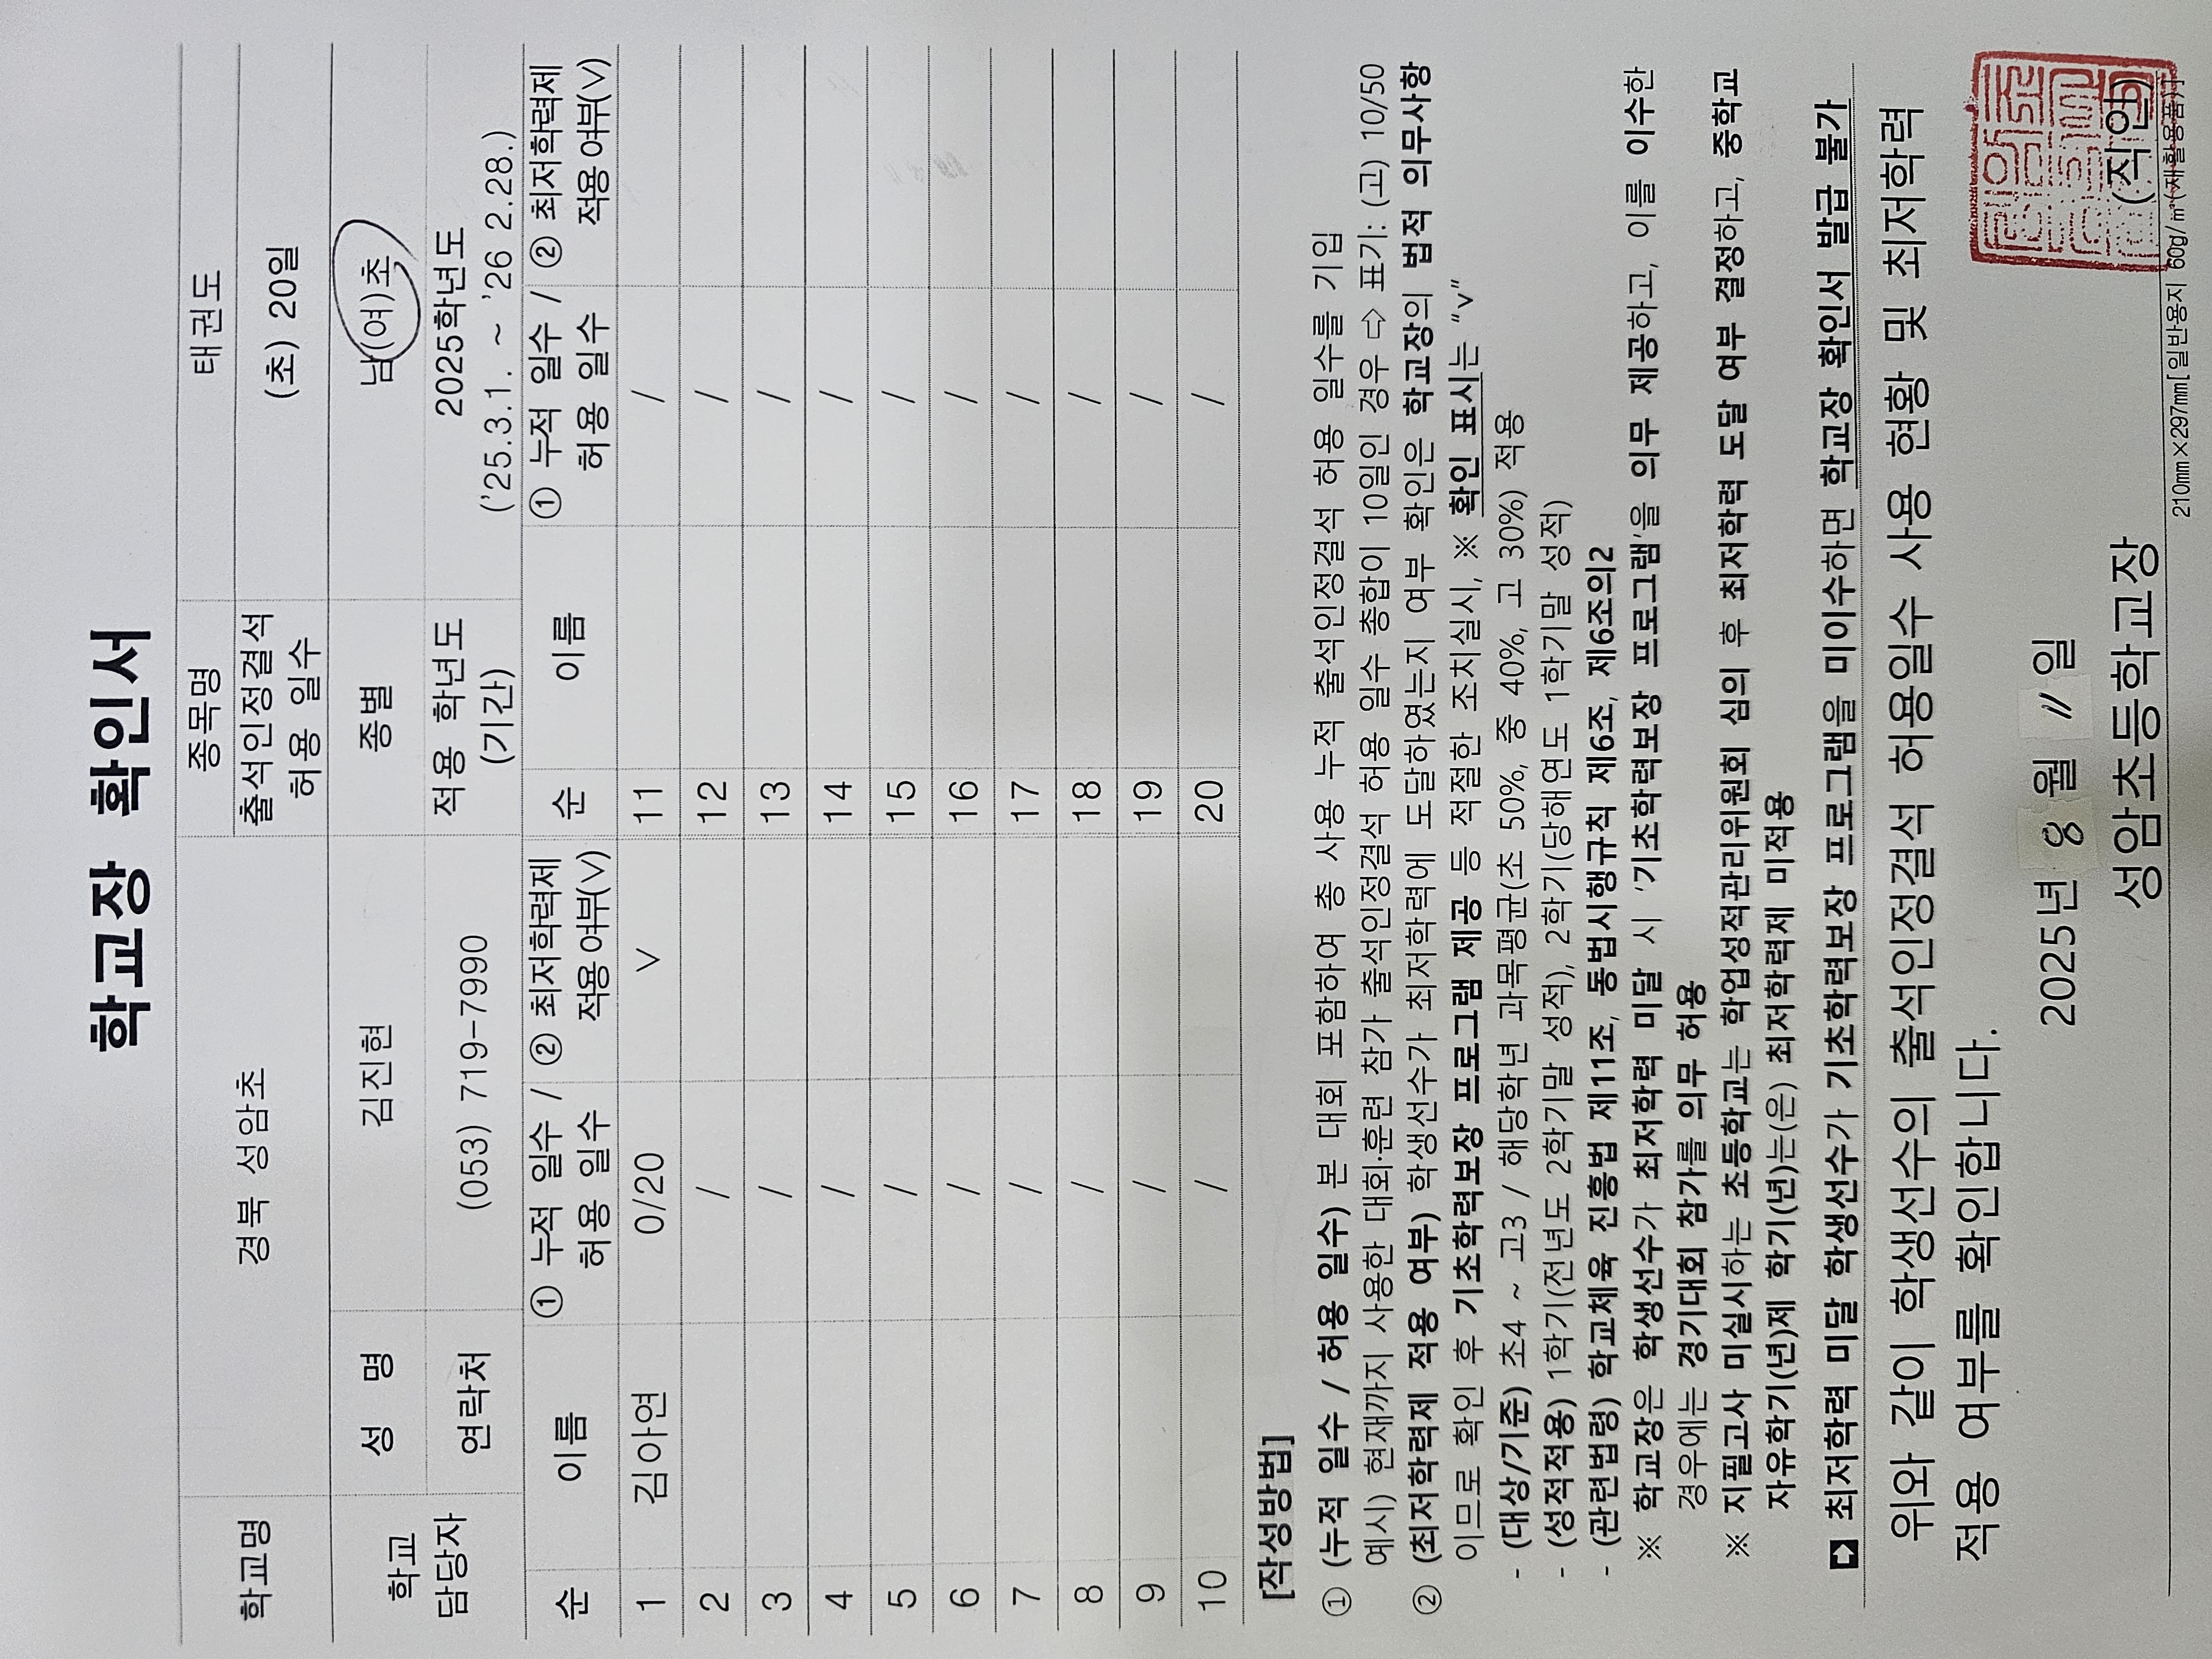 학교장 확인서
학교명 경북 성암초 종목명 태권도
출석인정결석 허용 일수 (초) 20일
학교 담당자 성 명 김진현 종별 남(여)초
연락처 (053) 719-7990 적용 학년도 (기간) 2025학년도 ('25.3.1. ~ '26 2.28.)
순 이름 ① 누적 일수 / 허용 일수 ② 최저학력제 적용여부(∨) 순 이름 ① 누적 일수 / 허용 일수 ② 최저학력제 적용여부(∨)
1 김아연 0/20 ∨ 11 /
2 / 12 /
3 / 13 /
4 / 14 /
5 / 15 /
6 / 16 /
7 / 17 /
8 / 18 /
9 / 19 /
10 / 20 /
[작성방법]
① (누적 일수 / 허용 일수) 본 대회 포함하여 총 사용 누적 출석인정결석 허용 일수를 기입
예시) 현재까지 사용한 대회·훈련 참가 출석인정결석 허용 일수 총합이 10일인 경우 ⇨ 표기: (고) 10/50
② (최저학력제 적용 여부) 학생선수가 최저학력에 도달하였는지 여부 확인은 학교장의 법적 의무사항
이므로 확인 후 기초학력보장 프로그램 제공 등 적절한 조치실시, ※ 확인 표시는 "v"
- (대상/기준) 초4 ~ 고3 / 해당학년 과목평균(초 50%, 중 40%, 고 30%) 적용
- (성적적용) 1학기(전년도 2학기말 성적), 2학기(당해연도 1학기말 성적)
- (관련법령) 학교체육 진흥법 제11조, 동법시행규칙 제6조, 제6조의2
※ 학교장은 학생선수가 최저학력 미달 시 '기초학력보장 프로그램'을 의무 제공하고, 이를 이수한
경우에는 경기대회 참가를 의무 허용
※ 지필고사 미실시하는 초등학교는 학업성적관리위원회 심의 후 최저학력 도달 여부 결정하고, 중학교
자유학기(년)제 학기(년)는(은) 최저학력제 미적용
➡ 최저학력 미달 학생선수가 기초학력보장 프로그램을 미이수하면 학교장 확인서 발급 불가
위와 같이 학생선수의 출석인정결석 허용일수 사용 현황 및 최저학력
적용 여부를 확인합니다.
2025년 8월 11일
성암초등학교장 (직인)
210㎜×297㎜[일반용지 60g/㎡(재활용품)]